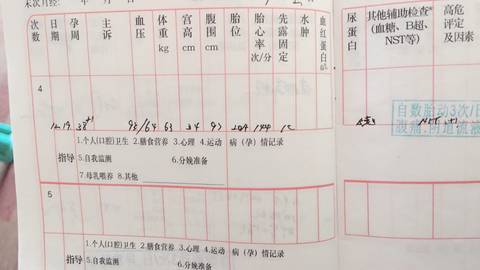 末次月经: 年 月 日
次数 日期 孕周 主诉 血压 体重kg 宫高cm 腹围cm 胎位 胎心率次/分 先露固定 水肿 血红蛋白 尿蛋白 其他辅助检查*(血糖、B超、NST等) 高危评定及因素
4
12.19 38+1 95/64 63 34 97 144
自数胎动3次/日
腹痛,阴道流液
指导 1.个人(口腔)卫生 2.膳食营养 3.心理 4.运动 病(孕)情记录
5.自我监测 6.分娩准备
7.母乳喂养 8.其他
5
指导 1.个人(口腔)卫生 2.膳食营养 3.心理 4.运动 病(孕)情记录
5.自我监测 6.分娩准备